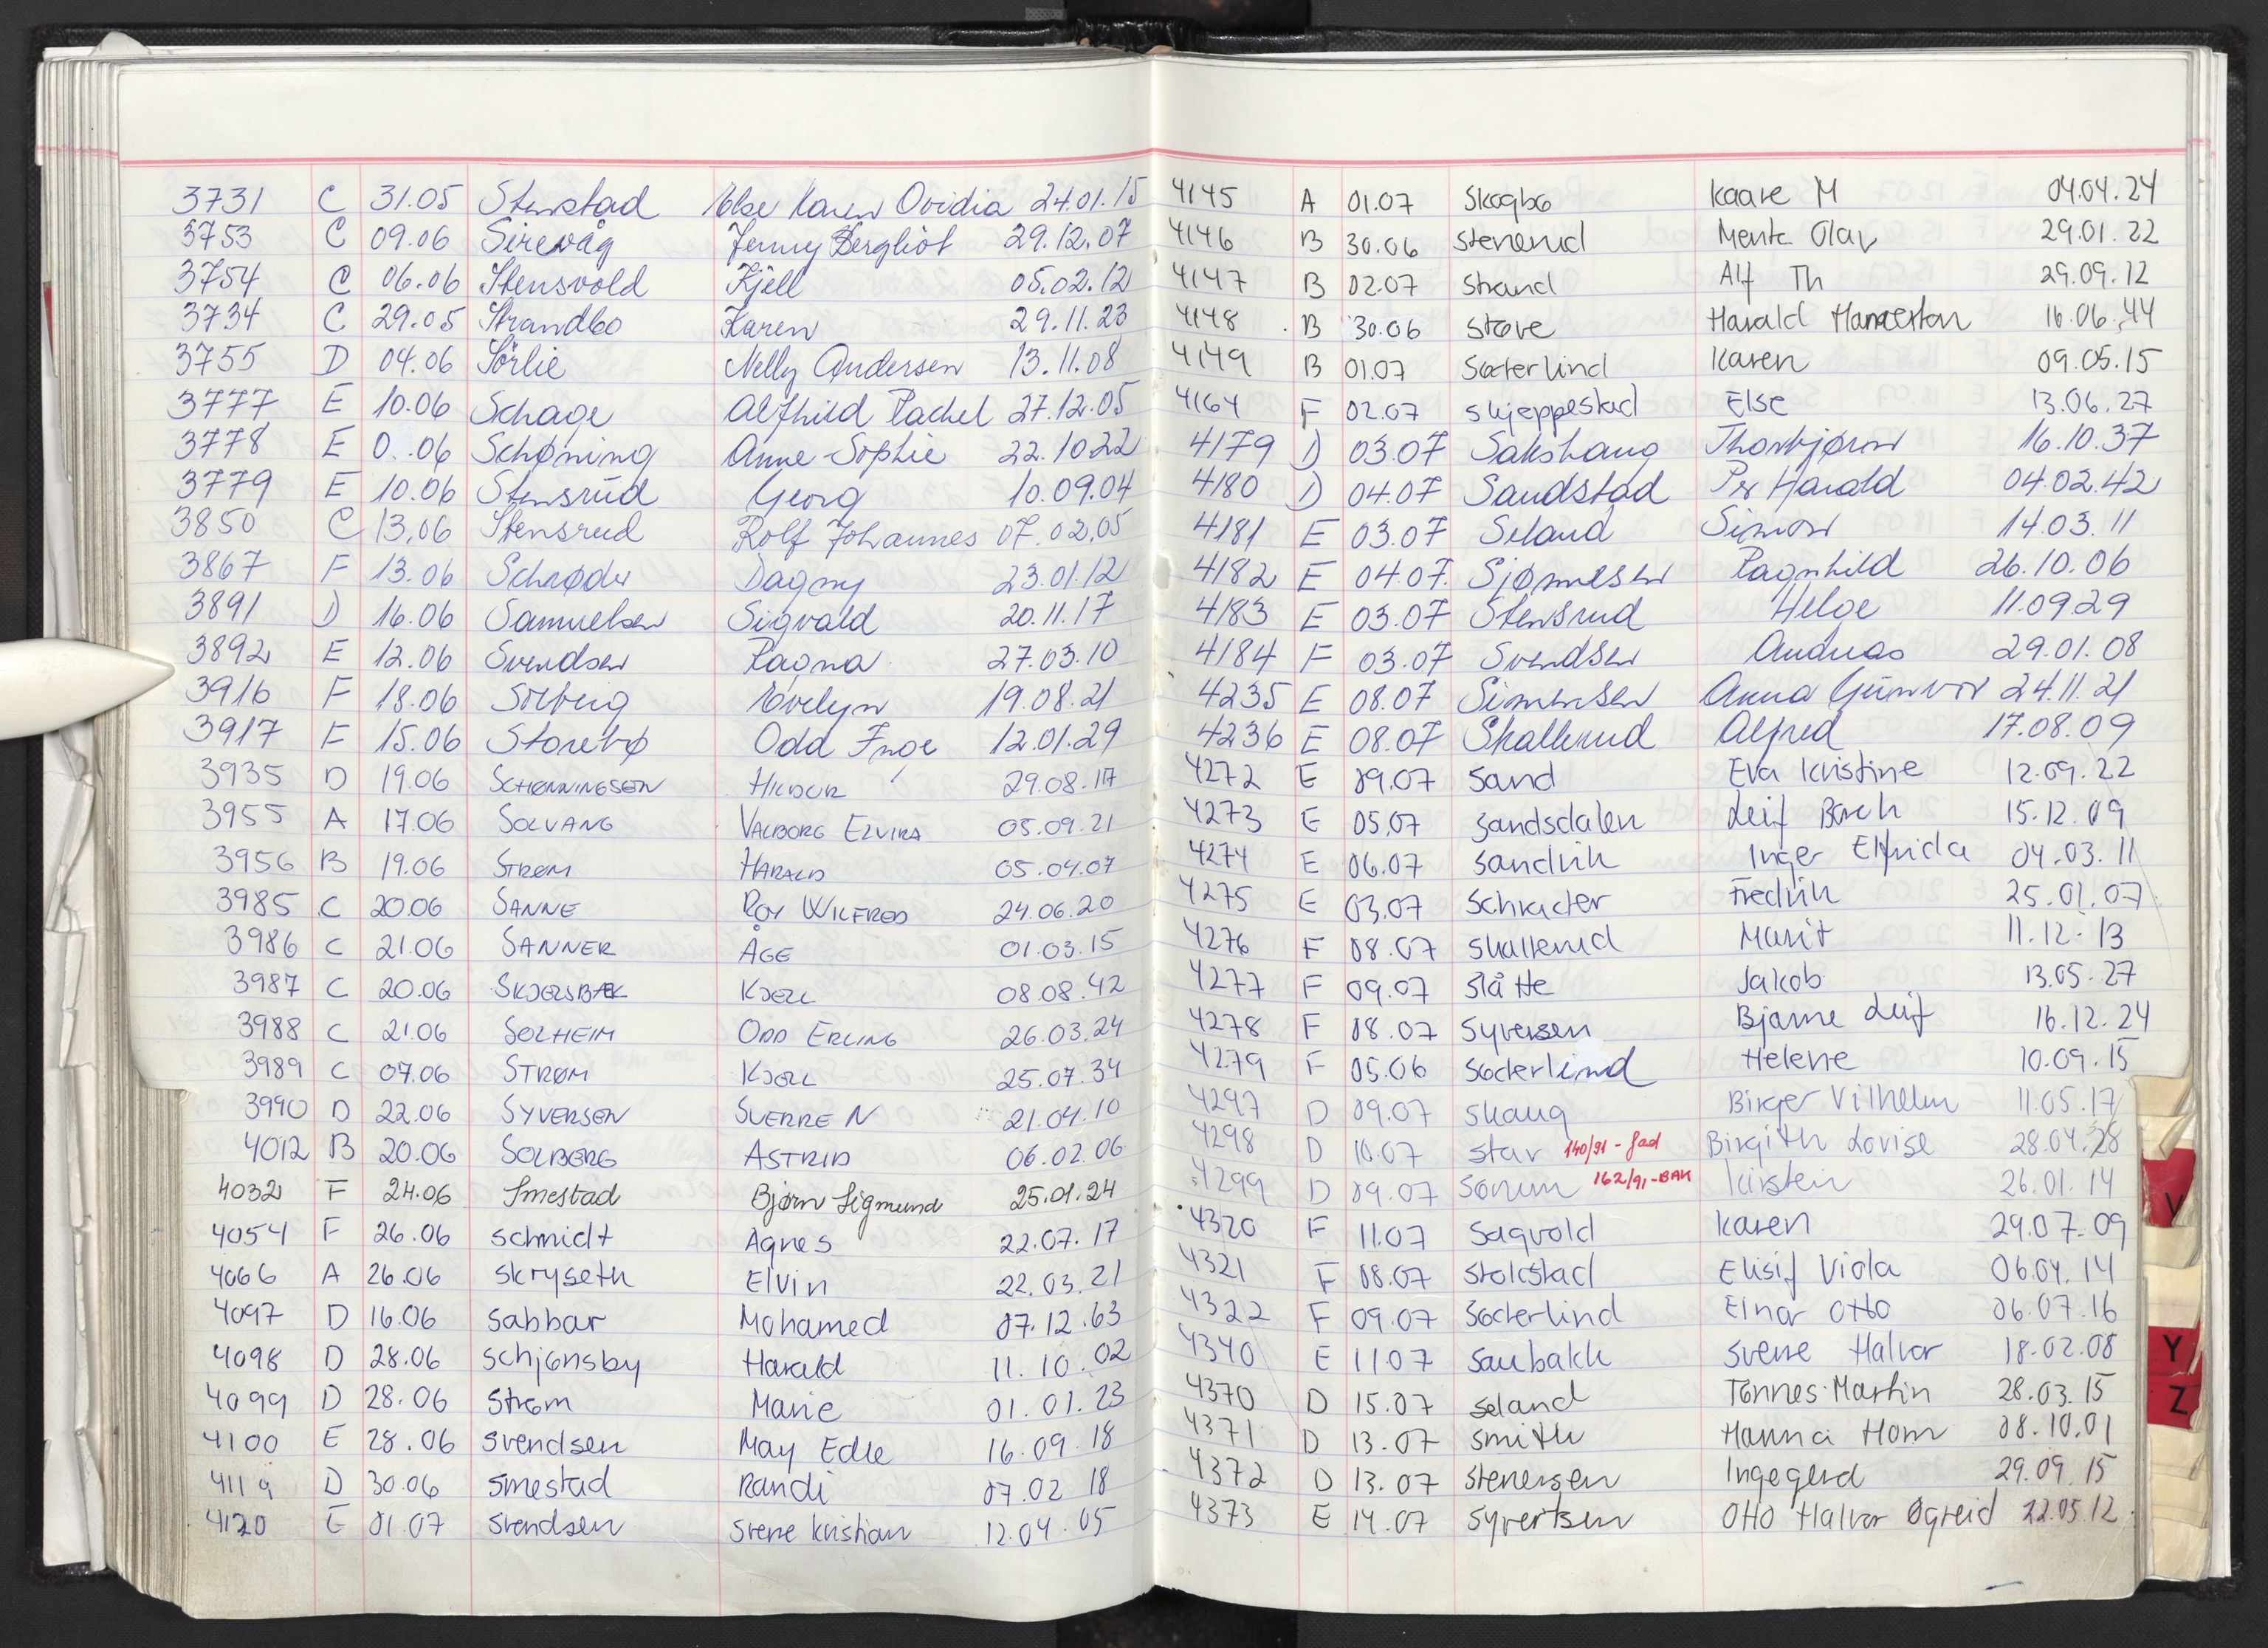 3731 C 31.05 Stenstad Else Karen Ovidia 24.01.15
3753 C 09.06 Sirevåg Jenny Bergliot 29.12.07
3754 C 06.06 Stensvold Kjell 05.02.12
3734 C 29.05 Strandbo Karen 29.11.23
3755 D 04.06 Sörlie Nelly Andersen 13.11.08
3777 E 10.06 Schage Alfhild Rachel 27.12.05
3778 E 0..06 Schøning Anne-Sophie 22.10.22
3779 E 10.06 Stensrud Georg 10.09.04
3850 C 13.06 Stensrud Rolf Johannes 07.02.05
3867 F 13.06 Schrøder Dagny 23.01.12
3891 D 16.06 Samuelsen Sigvald 20.11.17
3892 E 12.06 Svendsen Ragna 27.03.10
3916 F 18.06 Solberg Evelyn 19.08.21
3917 F 15.06 Storebø Odd Inge 12.01.29
3935 D 19.06 SCHØNNINGSEN HILDUR 29.08.17
3955 A 17.06 SOLVANG VALBORG ELVIRA 05.09.21
3956 B 19.06 STRØM HARALD 05.04.07
3985 C 20.06 SANNE ROY WILFRED 24.06.20
3986 C 21.06 SANNER ÅGE 01.03.15
3987 C 20.06 SKJERSBÆK KJELL 08.08.42
3988 C 21.06 SOLHEIM ODD ERLING 26.03.24
3989 C 07.06 STRØM KJELL 25.07.34
3990 D 22.06 SYVERSEN SVERRE N 21.04.10
4012 B 20.06 SOLBERG ASTRID 06.02.06
4032 F 24.06 Smestad Bjørn Sigmund 25.01.24
4054 F 26.06 Schmidt Agnes 22.07.17
4066 A 26.06 Skryseth Elvin 22.03.21
4097 D 16.06 Sabbar Mohamed 07.12.63
4098 D 28.06 Schjønsby Harald 11.10.02
4099 D 28.06 Strøm Marie 01.01.23
4100 E 28.06 Svendsen May Edle 16.09.18
4119 D 30.06 Smestad Randi 07.02 18
4120 E 01.07 Svendsen Sverre Kristian 12.04.05
4145 A 01.07 Skogbo Kaare M 04.04.24
4146 B 30.06 Stenerud Olav 29.01.22
4147 B 02.07 Strand Alf Th 29.09.12
4148 B 30.06 Støve Harald 16.06.44
4149 B 01.07 Søderlind Karen 09.05.15
4164 F 02.07 Skjeppestad Else 13.06.27
4179 D 03.07 Sakshaug Thorbjørn 16.10.37
4180 D 04.07 Sandstad Per Harald 04.02.42
4181 E 03.07 Seland Simon 14.03.11
4182 E 04.07. Sjømesen Ragnhild 26.10.06
4183 E 03.07 Stensrud Helge 11.09.29
4184 F 03.07 Svendsen Andreas 29.01.08
4235 E 08.07 Simensen Anna Gunvor 24.11.21
4236 E 08.07 Skallerud Alfred 17.08.09
4272 E 09.07 Sand Eva Kristine 12.09.22
4273 E 05.07 Sandsdalen Leif Bach 15.12.09
4274 E 06.07 Sandvik Inger Elfrida 04.03.11
4275 E 03.07 Schrøder Fredrik 25.01.07
4276 F 08.07 Skallerud Marit 11.12.13
4277 F 09.07 Slåtte Jakob 13.05.27
4278 F 08.07 Syversen Bjarne Leif 16.12.24
4279 F 05.06 Søderlind Helene 10.09.15
4297 D 09.07 Skaug Birger Vilhelm 11.05.17
4298 D 10.07 Star 140/91-Gad Birgith Lovise 28.04.28
4299 D 09.07 Sørum 162/91-BAK Kirsten 26.01.14
4320 F 11.07 Sagvold Karen 29.07.09
4321 F 08.07 Stokstad Elisif Viola 06.04.14
4322 F 09.07 Søderlind Einar Otto 06.07.16
4340 E 11.07 Saubakk Sverre Halvor 18.02.08
4370 D 15.07 Seland Tønnes Martin 28.03.15
4371 D 13.07 Smith Hanna Horn 08.10.01
4372 D 13.07 Stenersen Ingegerd 29.09.15
4373 E 14.07 Syvertsen Otto Halvor Øgreid 22.05.12
V
Y
Z